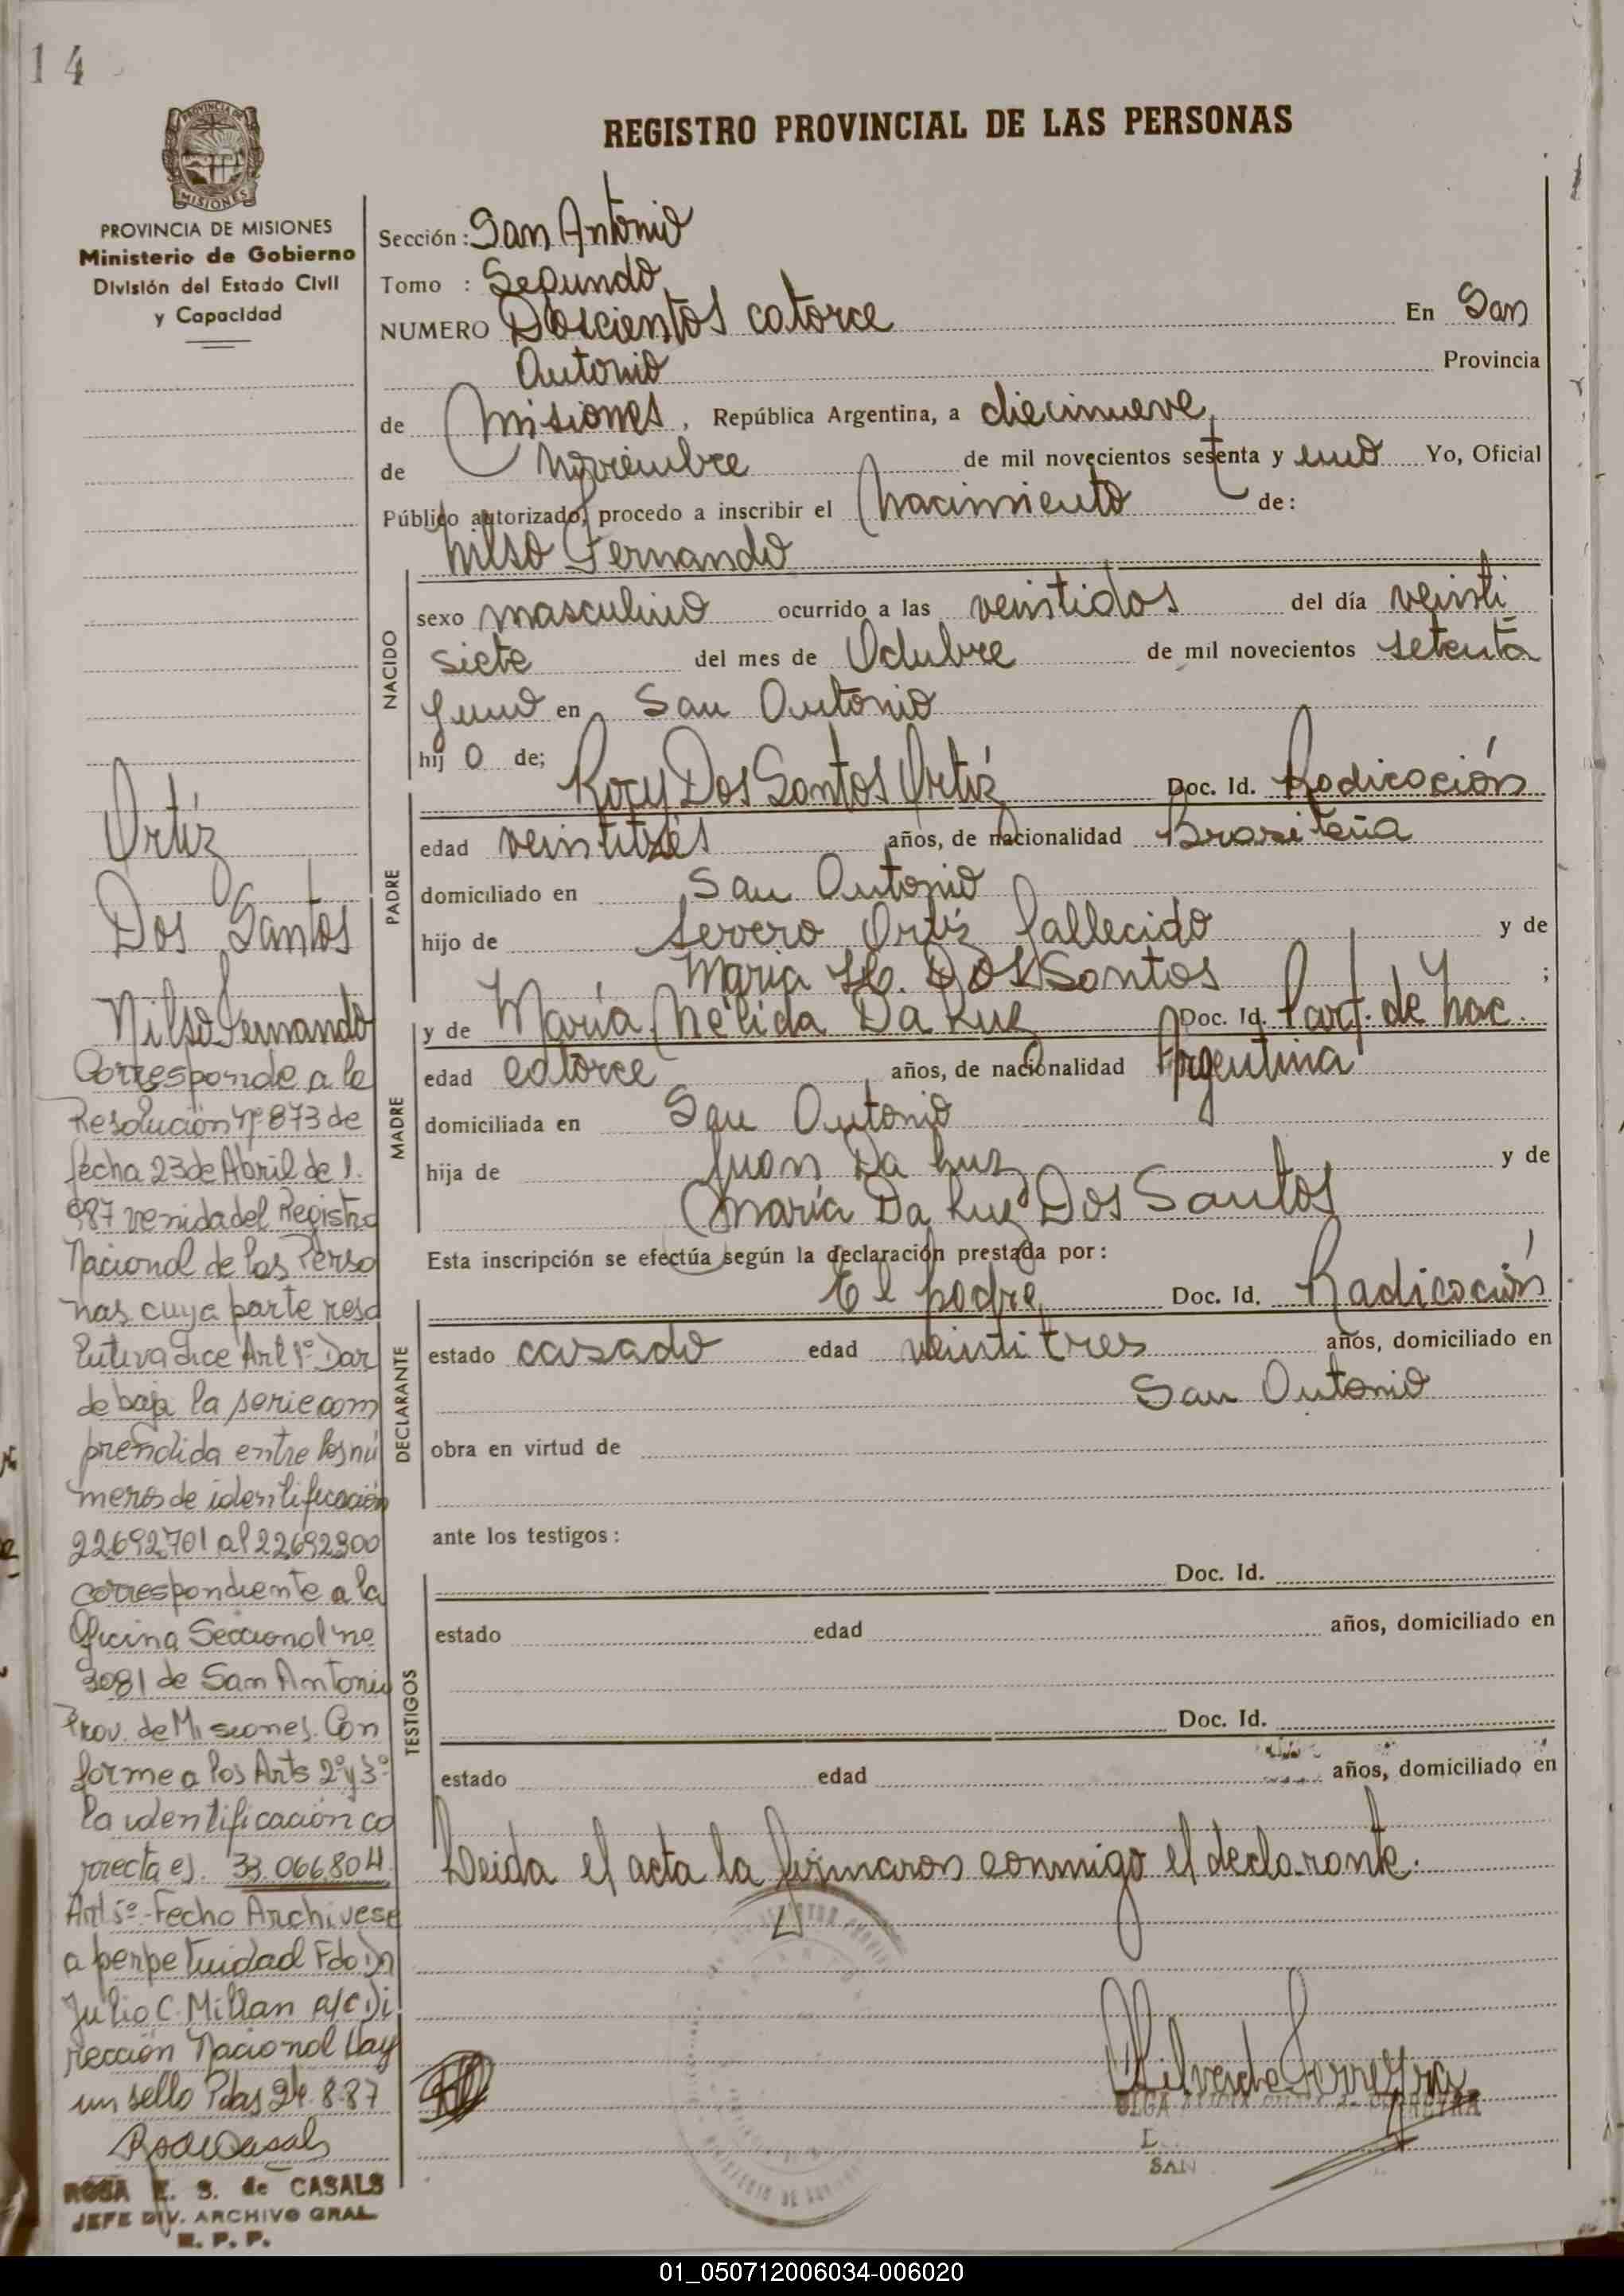 14
REGISTRO PROVINCIAL DE LAS PERSONAS
PROVINCIA DE MISIONES
Ministerio de Gobierno
División del Estado Civil
y Capacidad
Sección: San Antonio
Tomo : Segundo
NUMERO Doscientos catorce En San
Antonio Provincia
de Misiones, República Argentina, a diecinueve
de Noviembre de mil novecientos setenta y uno Yo, Oficial
Público autorizado, procedo a inscribir el Nacimiento de:
Nilso Fernando
NACIDO
sexo masculino ocurrido a las veintidos del día veinti
siete del mes de Octubre de mil novecientos setenta
y uno en San Antonio
hij o de;
PADRE
Rory Dos Santos Ortíz Doc. Id. Radicación
edad veintitrés años, de nacionalidad Brasileña
domiciliado en San Antonio
hijo de Severo Ortíz fallecido y de
Maria Dos Santos ;
MADRE
y de María Nélida Da Luz Doc. Id. Part. de Nac.
edad catorce años, de nacionalidad Argentina
domiciliada en San Antonio
hija de Juan Da Luz y de
María Da Luz Dos Santos
Esta inscripción se efectúa según la declaración prestada por:
DECLARANTE
El padre Doc. Id. Radicación
estado casado edad veintitres años, domiciliado en
San Antonio
obra en virtud de
ante los testigos:
TESTIGOS
Doc. Id.
estado edad años, domiciliado en
Doc. Id.
estado edad años, domiciliado en
Leida el acta la firmaron conmigo el declarante.
Ortiz
Dos Santos
Nilso Fernando
Corresponde a la
Resolución Nº 873 de
fecha 23 de Abril de 1.
987 venida del Registro
Nacional de las Perso
nas cuya parte reso
lutiva dice Art 1º Dar
de baja la serie com
prendida entre los nú
meros de identificación
22.692.701 al 22.692.900
correspondiente a la
Oficina Seccional no
3081 de San Antonio
Prov. de Misiones. Con
forme a los Arts 2º y 3º
la identificación co
rrecta es. 33.066.804.
Art 5º-Fecho Archivese
a perpetuidad Fdo Dn
Julio C. Millan a/c Di
rección Nacional Hay
un sello Pdas 24.8.87
ROSA E. S. de CASALS
JEFE DIV. ARCHIVO GRAL
R. P. P.
OLGA
SAN
01_050712006034-006020